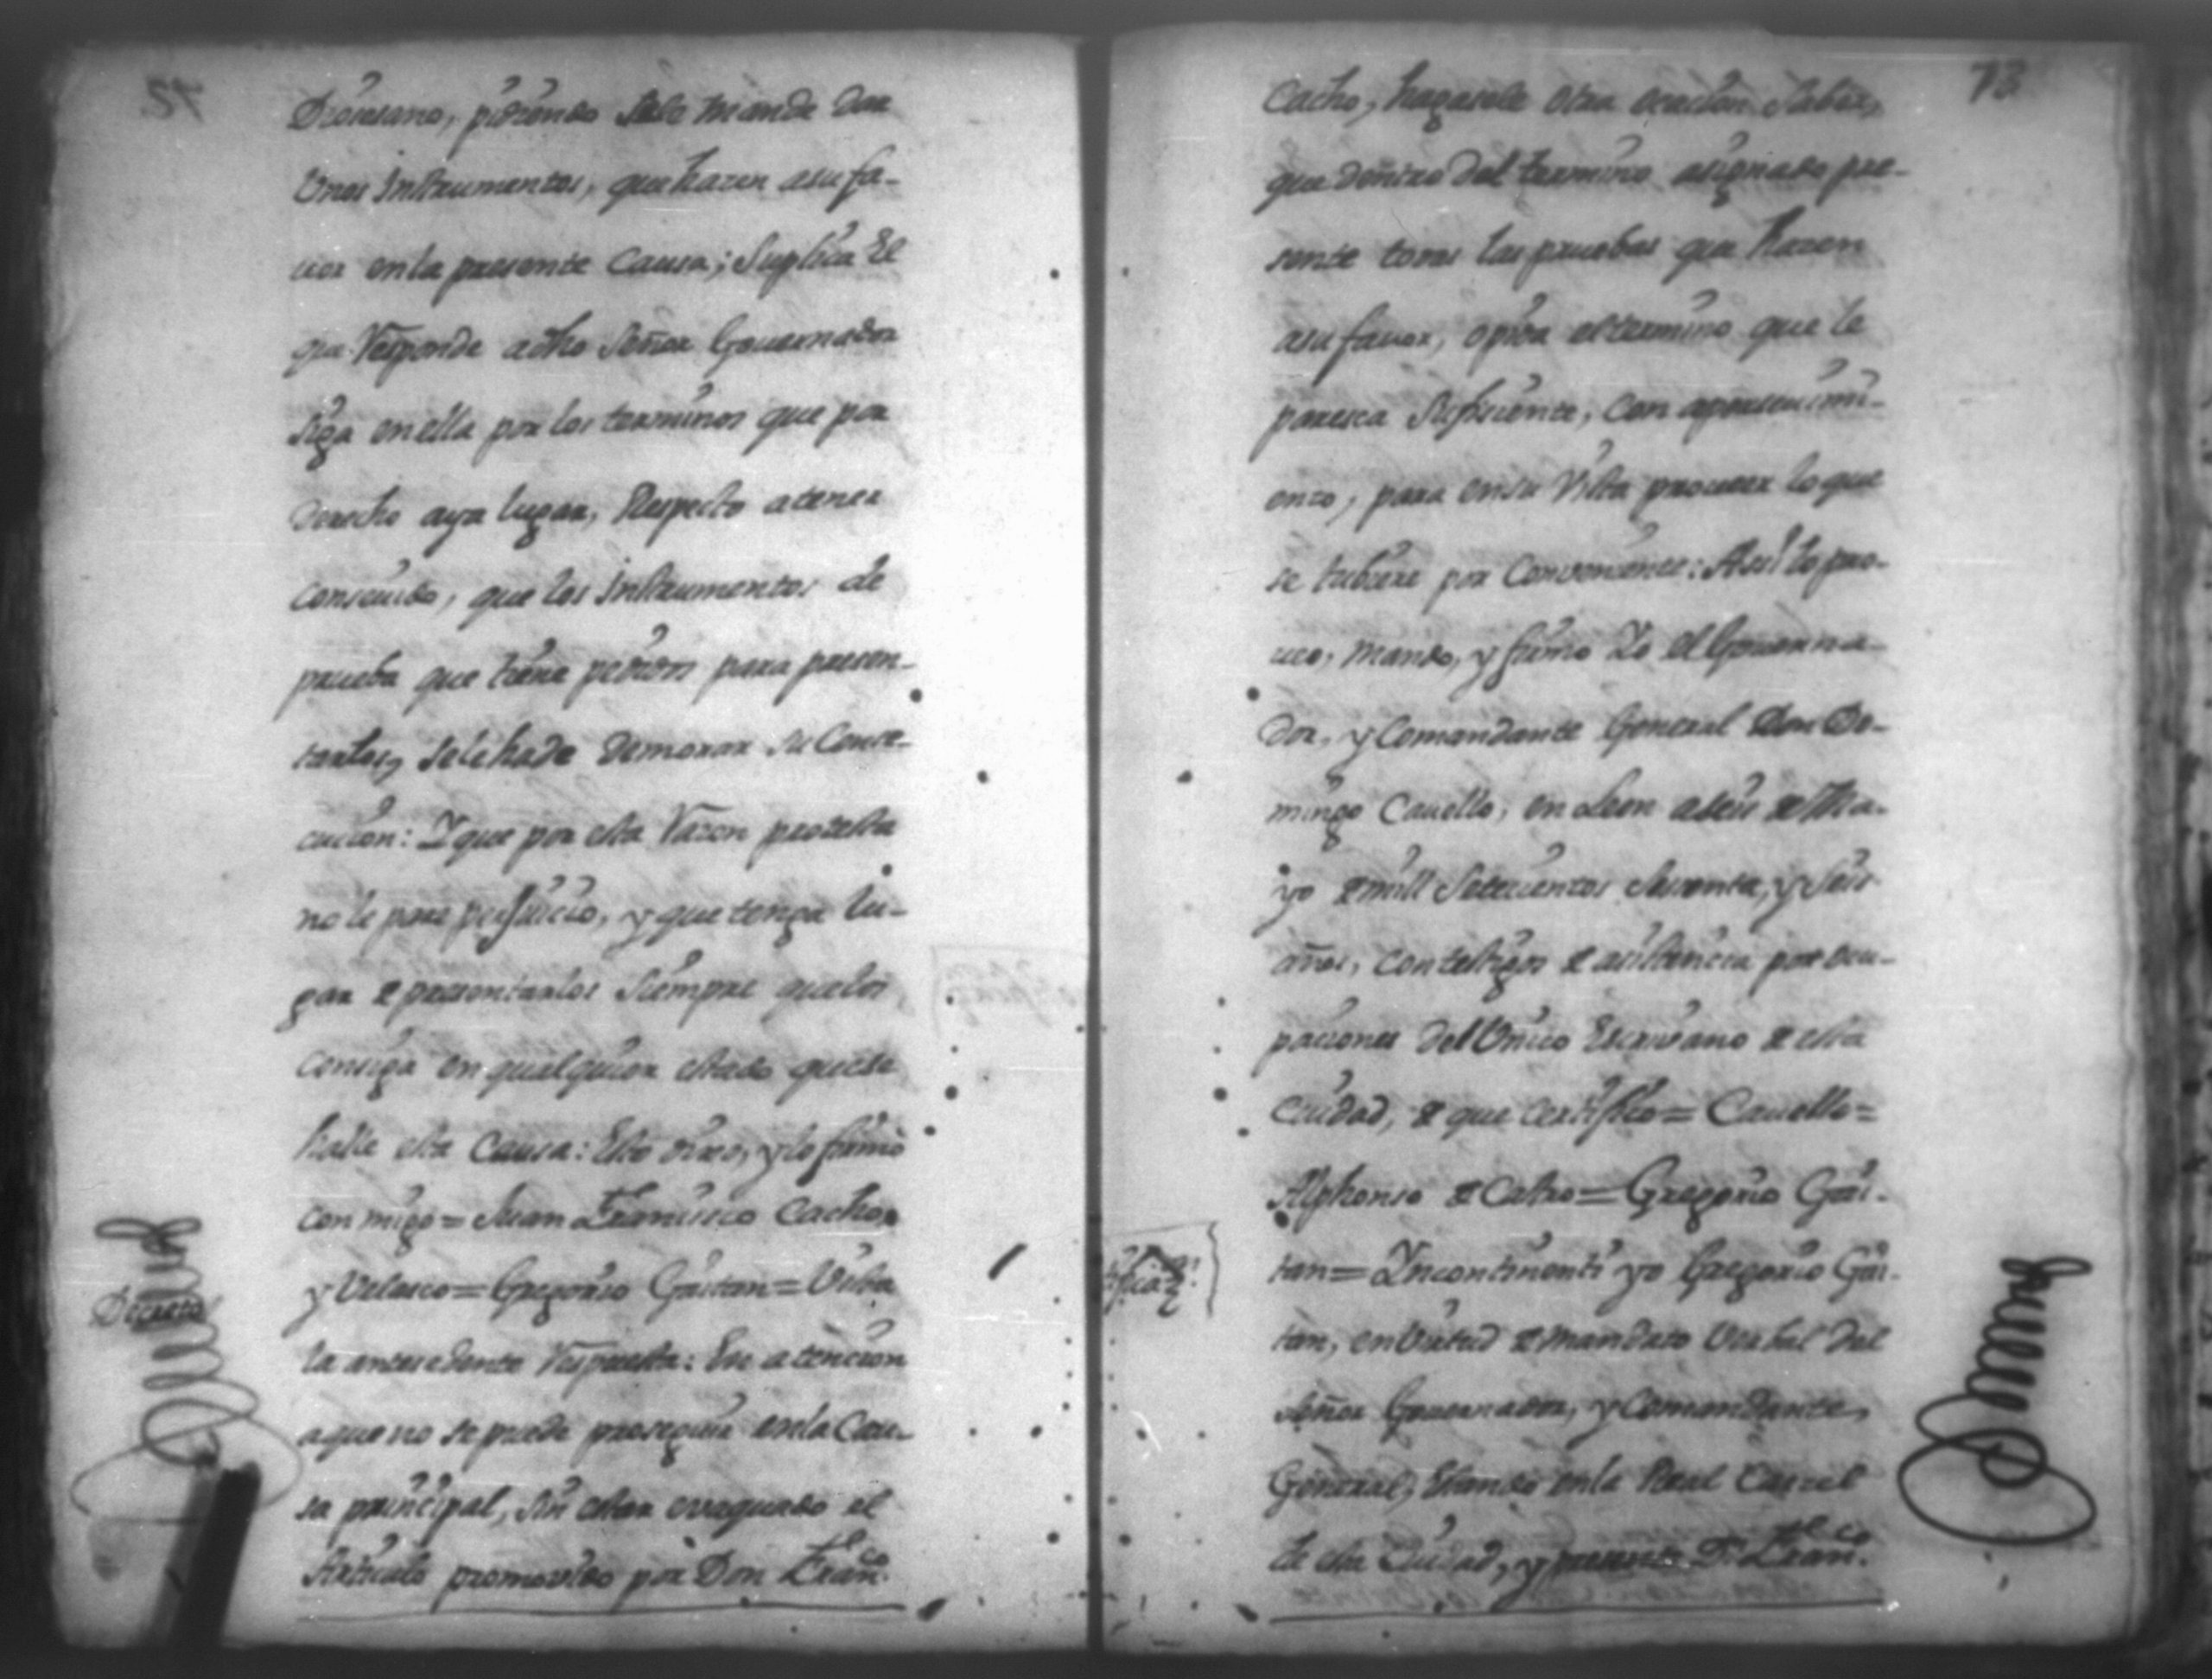 Diocesano, pidiendo sele mande dar
Unos Instrumentos, que hazen asufa-
uor enla presente Causa; Suplica El
que Responde adho Señor Gouernador
siga enella por los terminos que por
Derecho aya lugar, Respecto atener
consevido, que los Instrumentos de
prueba que tiene pedidos para presen-
tarlos, selehade demorar su Conse-
cucion: Y que por esta Razon protesta
no le pare perjuicio, y que tenga lu-
gar de presentarlos Siempre quelos
consiga en qualquier estado quese
halle esta Causa: Esto dixo, y lo firmò
con migo = Juan Francisco Cacho,
y Velasco = Gregorio Gaitan = Vista
Decreto
la antesedente Respuesta: En atencion
aqueno sepuede proseguir enla Cau-
sa principal, sin estar evaguado el
Articulo promovido por Don Franco.
73
Cacho, hagasele otra ocacion Saber,
que dentro del termino asignado pre-
sente todas las pruebas que hazen
asu fauor, o pida eltermino que le
paresca Suficiente, con apersevimi-
ento, para ensu Vista proueer loque
se tubiere por Conveniente: Así lo pro-
ueo, mando, y firmo Yo el Gouerna-
dor, y Comandante General Don Do-
mingo Cauello, en Leon aseis de Ma-
yo de mill Setecientos Sesenta, y Seis
años, contestigos de asistencia por ocu-
paciones del Unico Escrivano de esta
Ciudad, de que certifico = Cauello =
Alphonso de Castro = Gregorio Gai-
tan = Yncontinenti yo Gregorio Gai-
tan, en Virtud de mandato Verbal del
Señor Gouernador, y Comandante,
General, Estando enla Real Carcel
de esta Ciudad, y presente Dn. Franco.